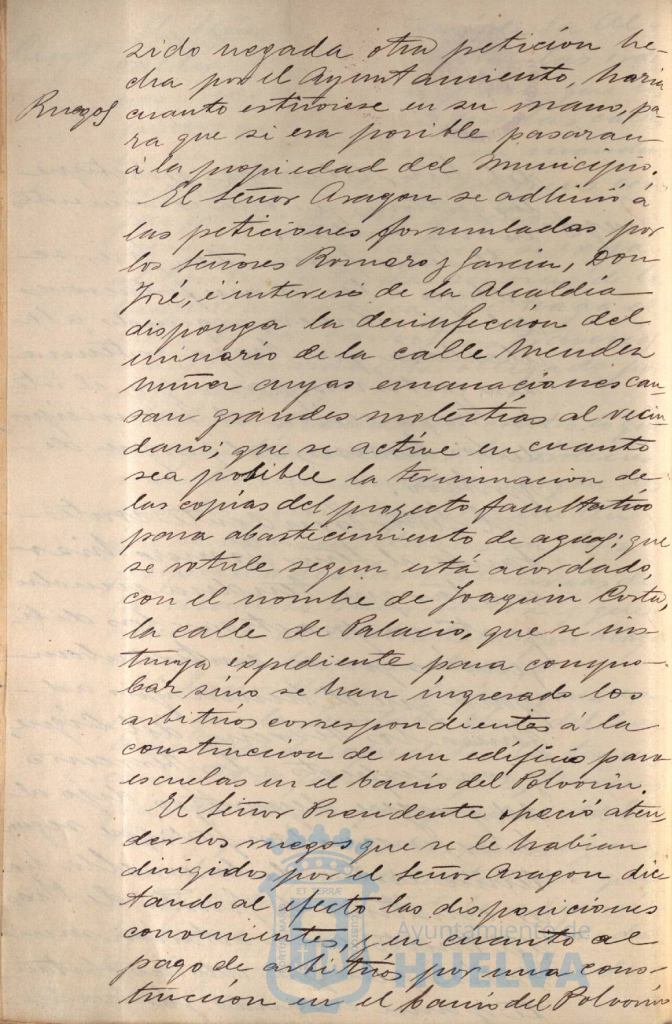 sido negada otra petición he-
cha por el Ayuntamiento, haria
Ruegos
cuanto estuviese en su mano, pa
ra que si era posible pasaran
á la propiedad del Municipio.
El Señor Aragon se adhirió á
las peticiones formuladas por
los Señores Romero y Garcia, Don
José, é interesó de la Alcaldía
disponga la desinfección del
urinario de la calle Mendez
Nuñez cuyas emanaciones cau-
san grandes molestías al vecin-
dario; que se active en cuanto
sea posible la terminacion de
las copias del proyecto facultativo
para abastecimiento de aguas; que
se rotule segun está acordado,
con el nombre de Joaquin Costa,
la calle de Palacio, que se ins-
truya expediente para compro-
bar sino se han ingresado los
arbitrios correspondientes á la
construcion de un edificio para
escuelas en el barrio del Polvorin.
El Señor Presidente ofreció aten-
der los ruegos que se le habian
dirigidos por el Señor Aragon dic
tando al efecto las disposiciones
convenientes, y en cuanto al
pago de arbitrios por una cons-
trucción en el barrio del Polvorin
ET TERRÆ
Ayuntamiento de
HUELVA